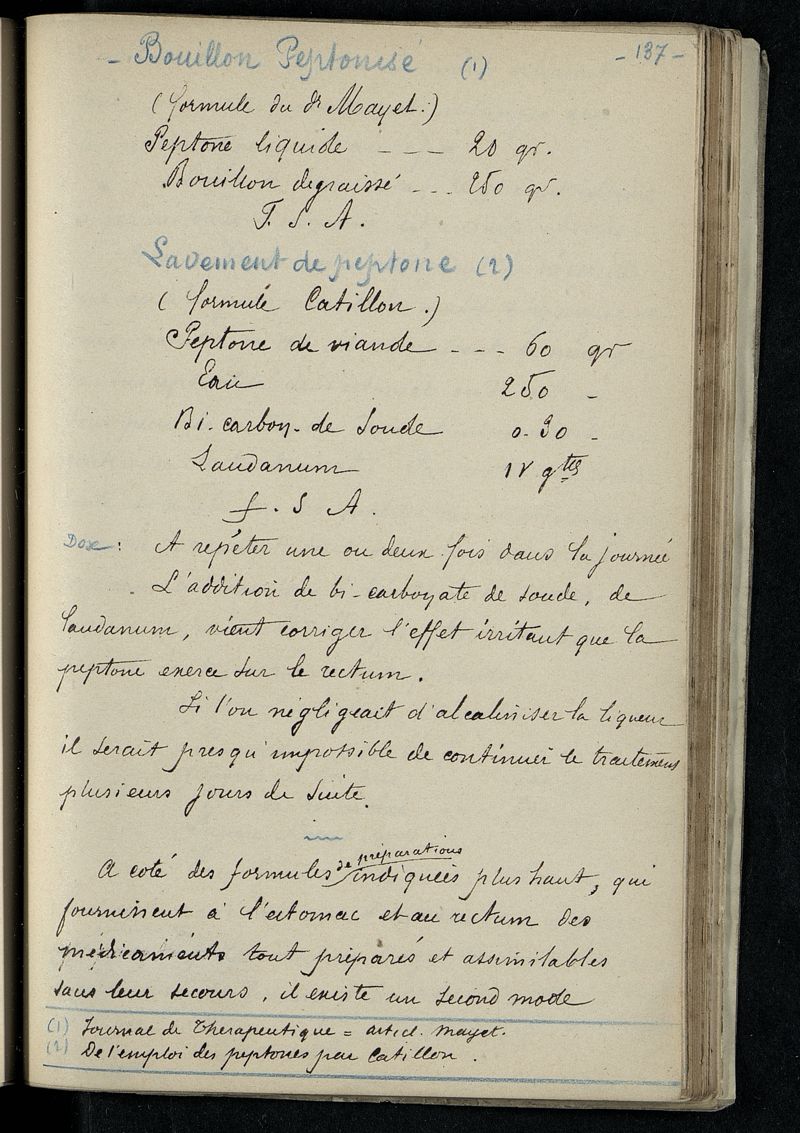 - Bouillon Peptonisé (1) - 137 -
(formule du dr Mayet.)
Peptone liquide - - - 20 gr.
Bouillon degraissé - - 250 gr.
F. S. A.
Lavement de peptone (2)
(formule Catillon.)
Peptone de viande - - - 60 gr
Eau 250 -
Bi-carbon. de soude 0.30 -
Laudanum IV gttes
f. S A.
Dose : A repéter une ou deux fois dans la journée
L'addition de bi-carbonate de soude, de
laudanum, vient corriger l'effet irritant que la
peptone exerce sur le rectum.
Si l'on négligeait d'alcaliniser la liqueur
il serait presqu'impossible de continuer le traitement
plusieurs jours de suite.
A coté des formules de préparations indiquées plus haut, qui
fournissent à l'estomac et au rectum des
médicaments tout préparés et assimilables
sans leur secours, il existe un second mode
(1) Journal de Thérapeutique = articl. Mayet.
(2) De l'emploi des peptones par Catillon.